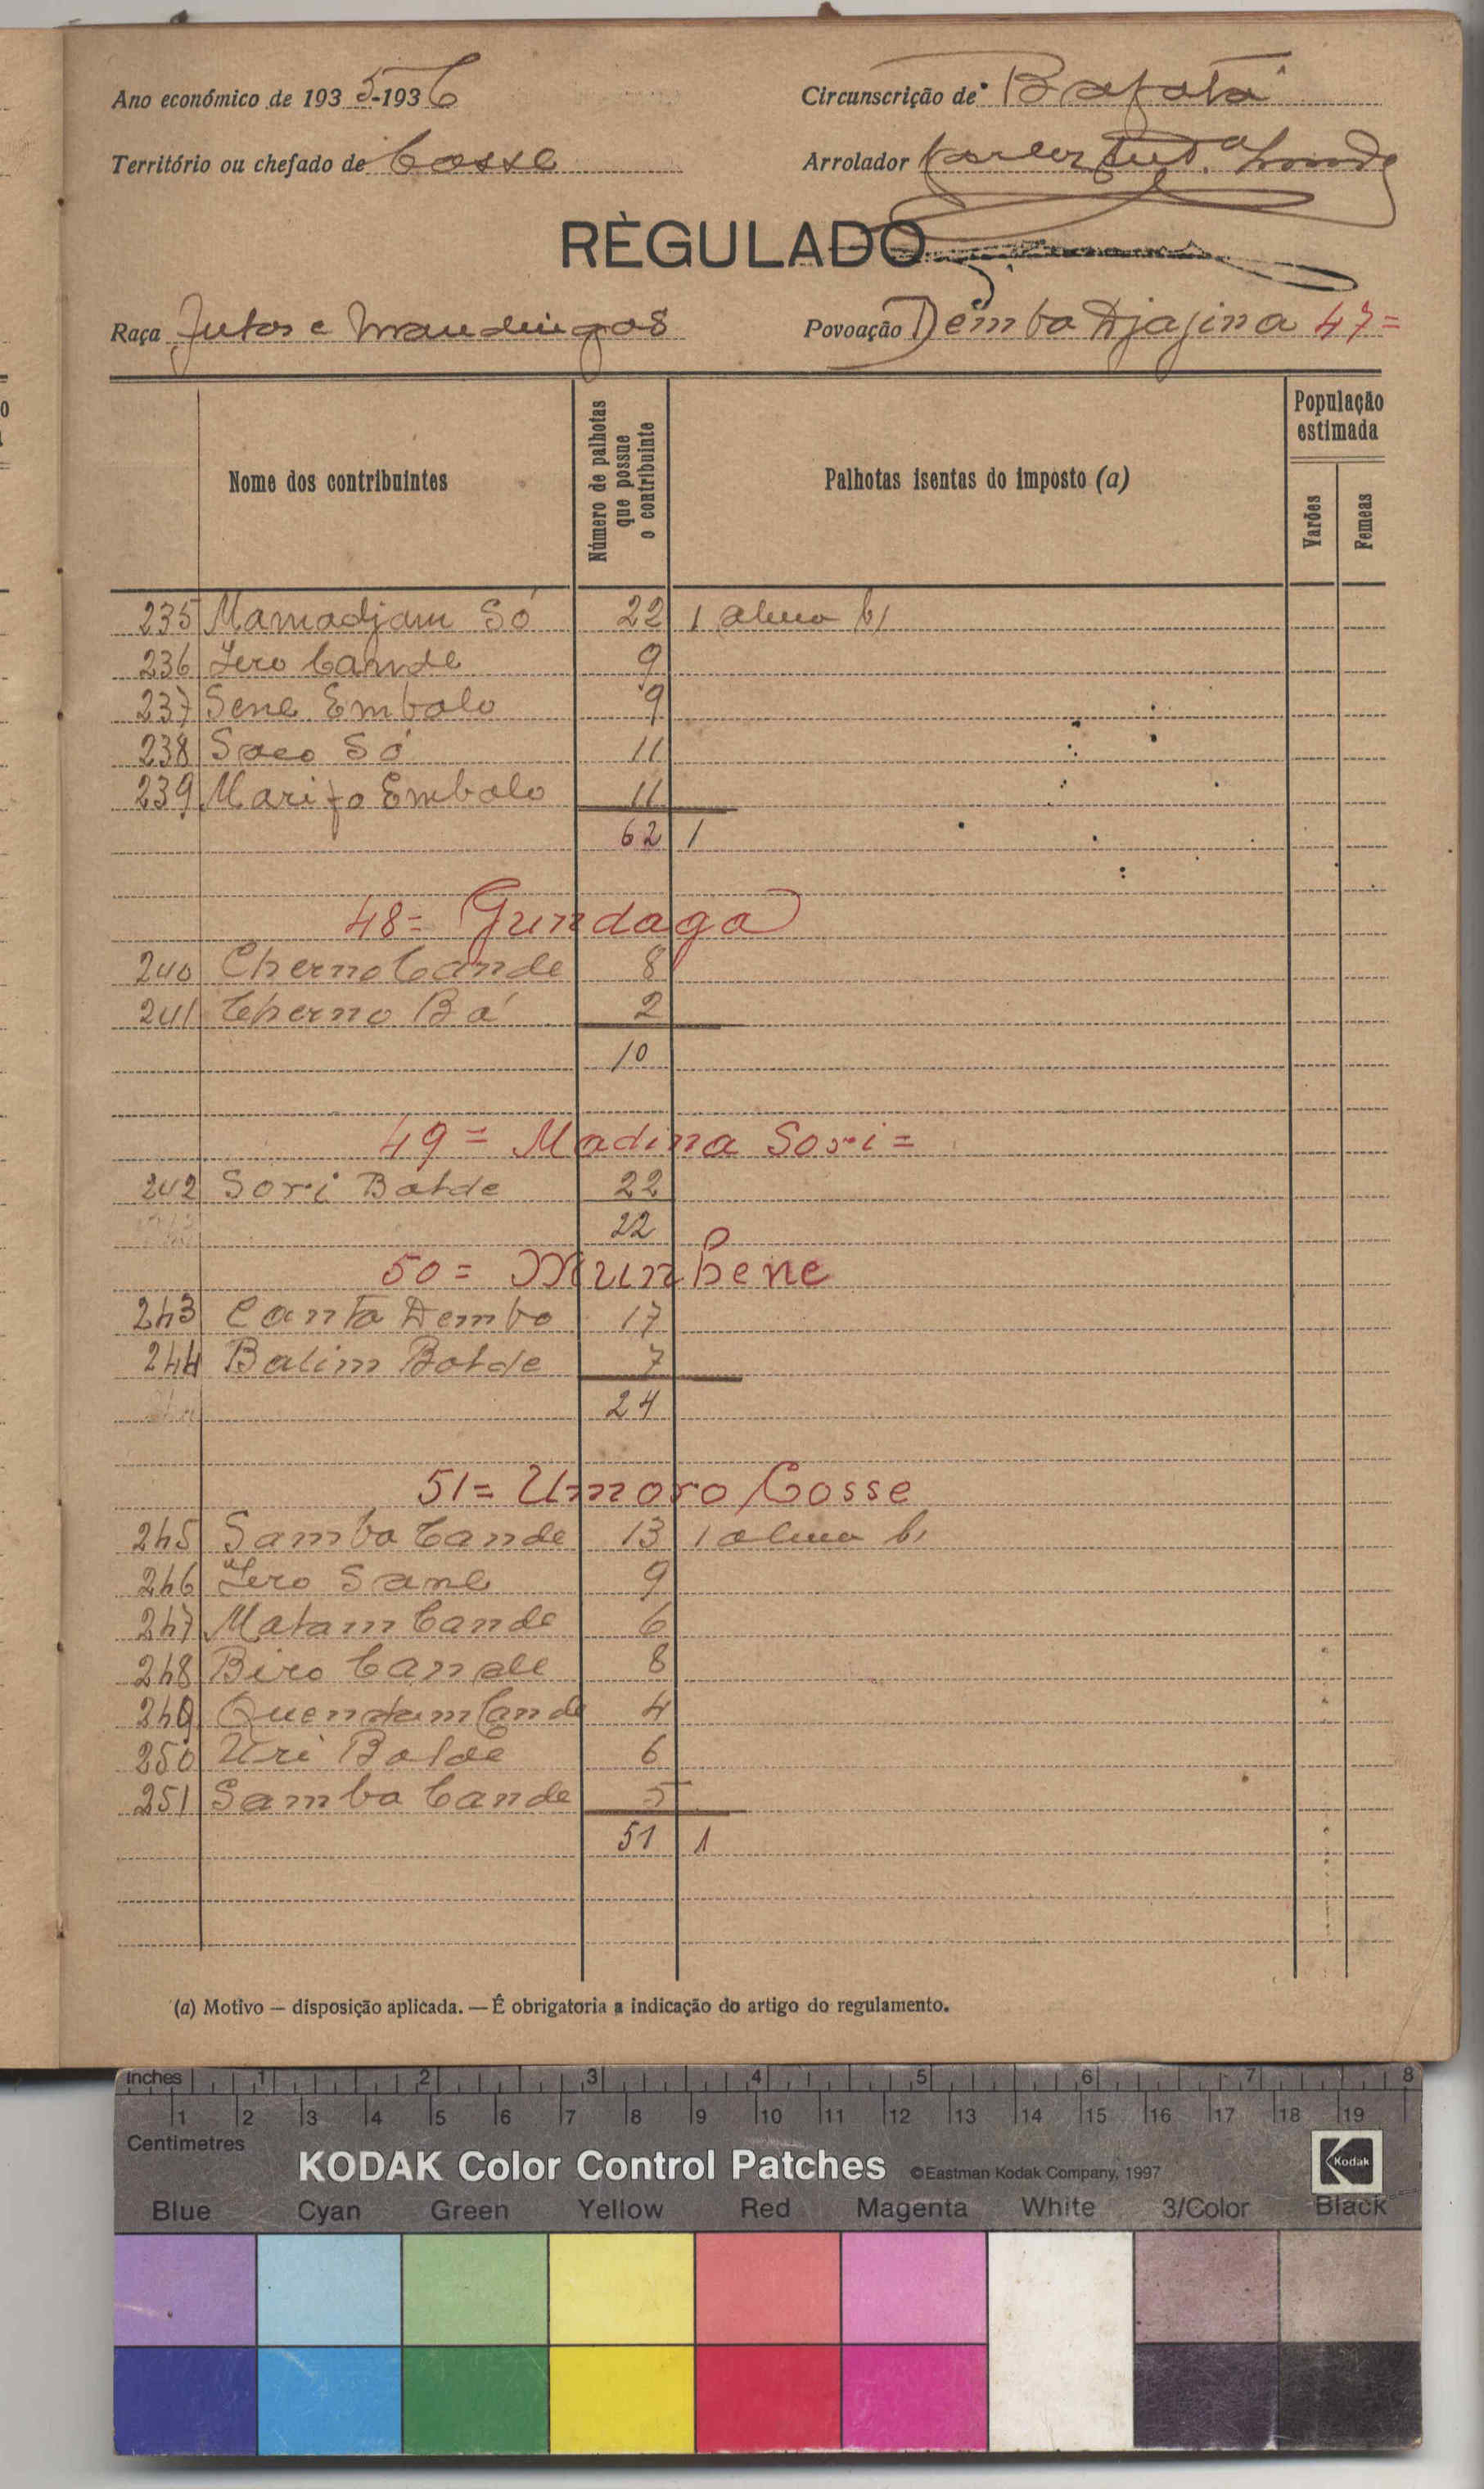 Ano económico de 1935-1936
Circunscrição de Bafatá
Território ou chefado de Cosse
Arrolador
REGULADO
Raça Futas e Mandingas
Povoação Demba Djajina 47=
Nome dos contribuintes
Número de palhotas que possue o contribuinte
Palhotas isentas do imposto (a)
População estimada
Varões
Femeas
235 Mamadjam Só 22 1 b)
236 Iero Cande 9
237 Sene Embalo 9
238 Saco Só 11
239 Marifo Embalo 11
62 1
48= Gundaga
240 Cherno Cande 8
241 Cherno Bá 2
10
49= Madina Sori=
242 Sori Balde 22
22
50= Munhene
243 Canta Demba 17
244 Balim Balde 7
24
51= Umoro Cosse
245 Samba Cande 13 1 b)
246 Iero Sane 9
247 Matam Cande 6
248 Biro Cande 8
249 Cande 4
250 Uri Balde 6
251 Samba Cande 5
51 1
(a) Motivo — disposição aplicada. — É obrigatoria a indicação do artigo do regulamento.
Inches 1 2 3 4 5 6 7 8
1 2 3 4 5 6 7 8 9 10 11 12 13 14 15 16 17 18 19
Centimetres
KODAK Color Control Patches ©Eastman Kodak Company, 1997 Kodak
Blue Cyan Green Yellow Red Magenta White 3/Color Black